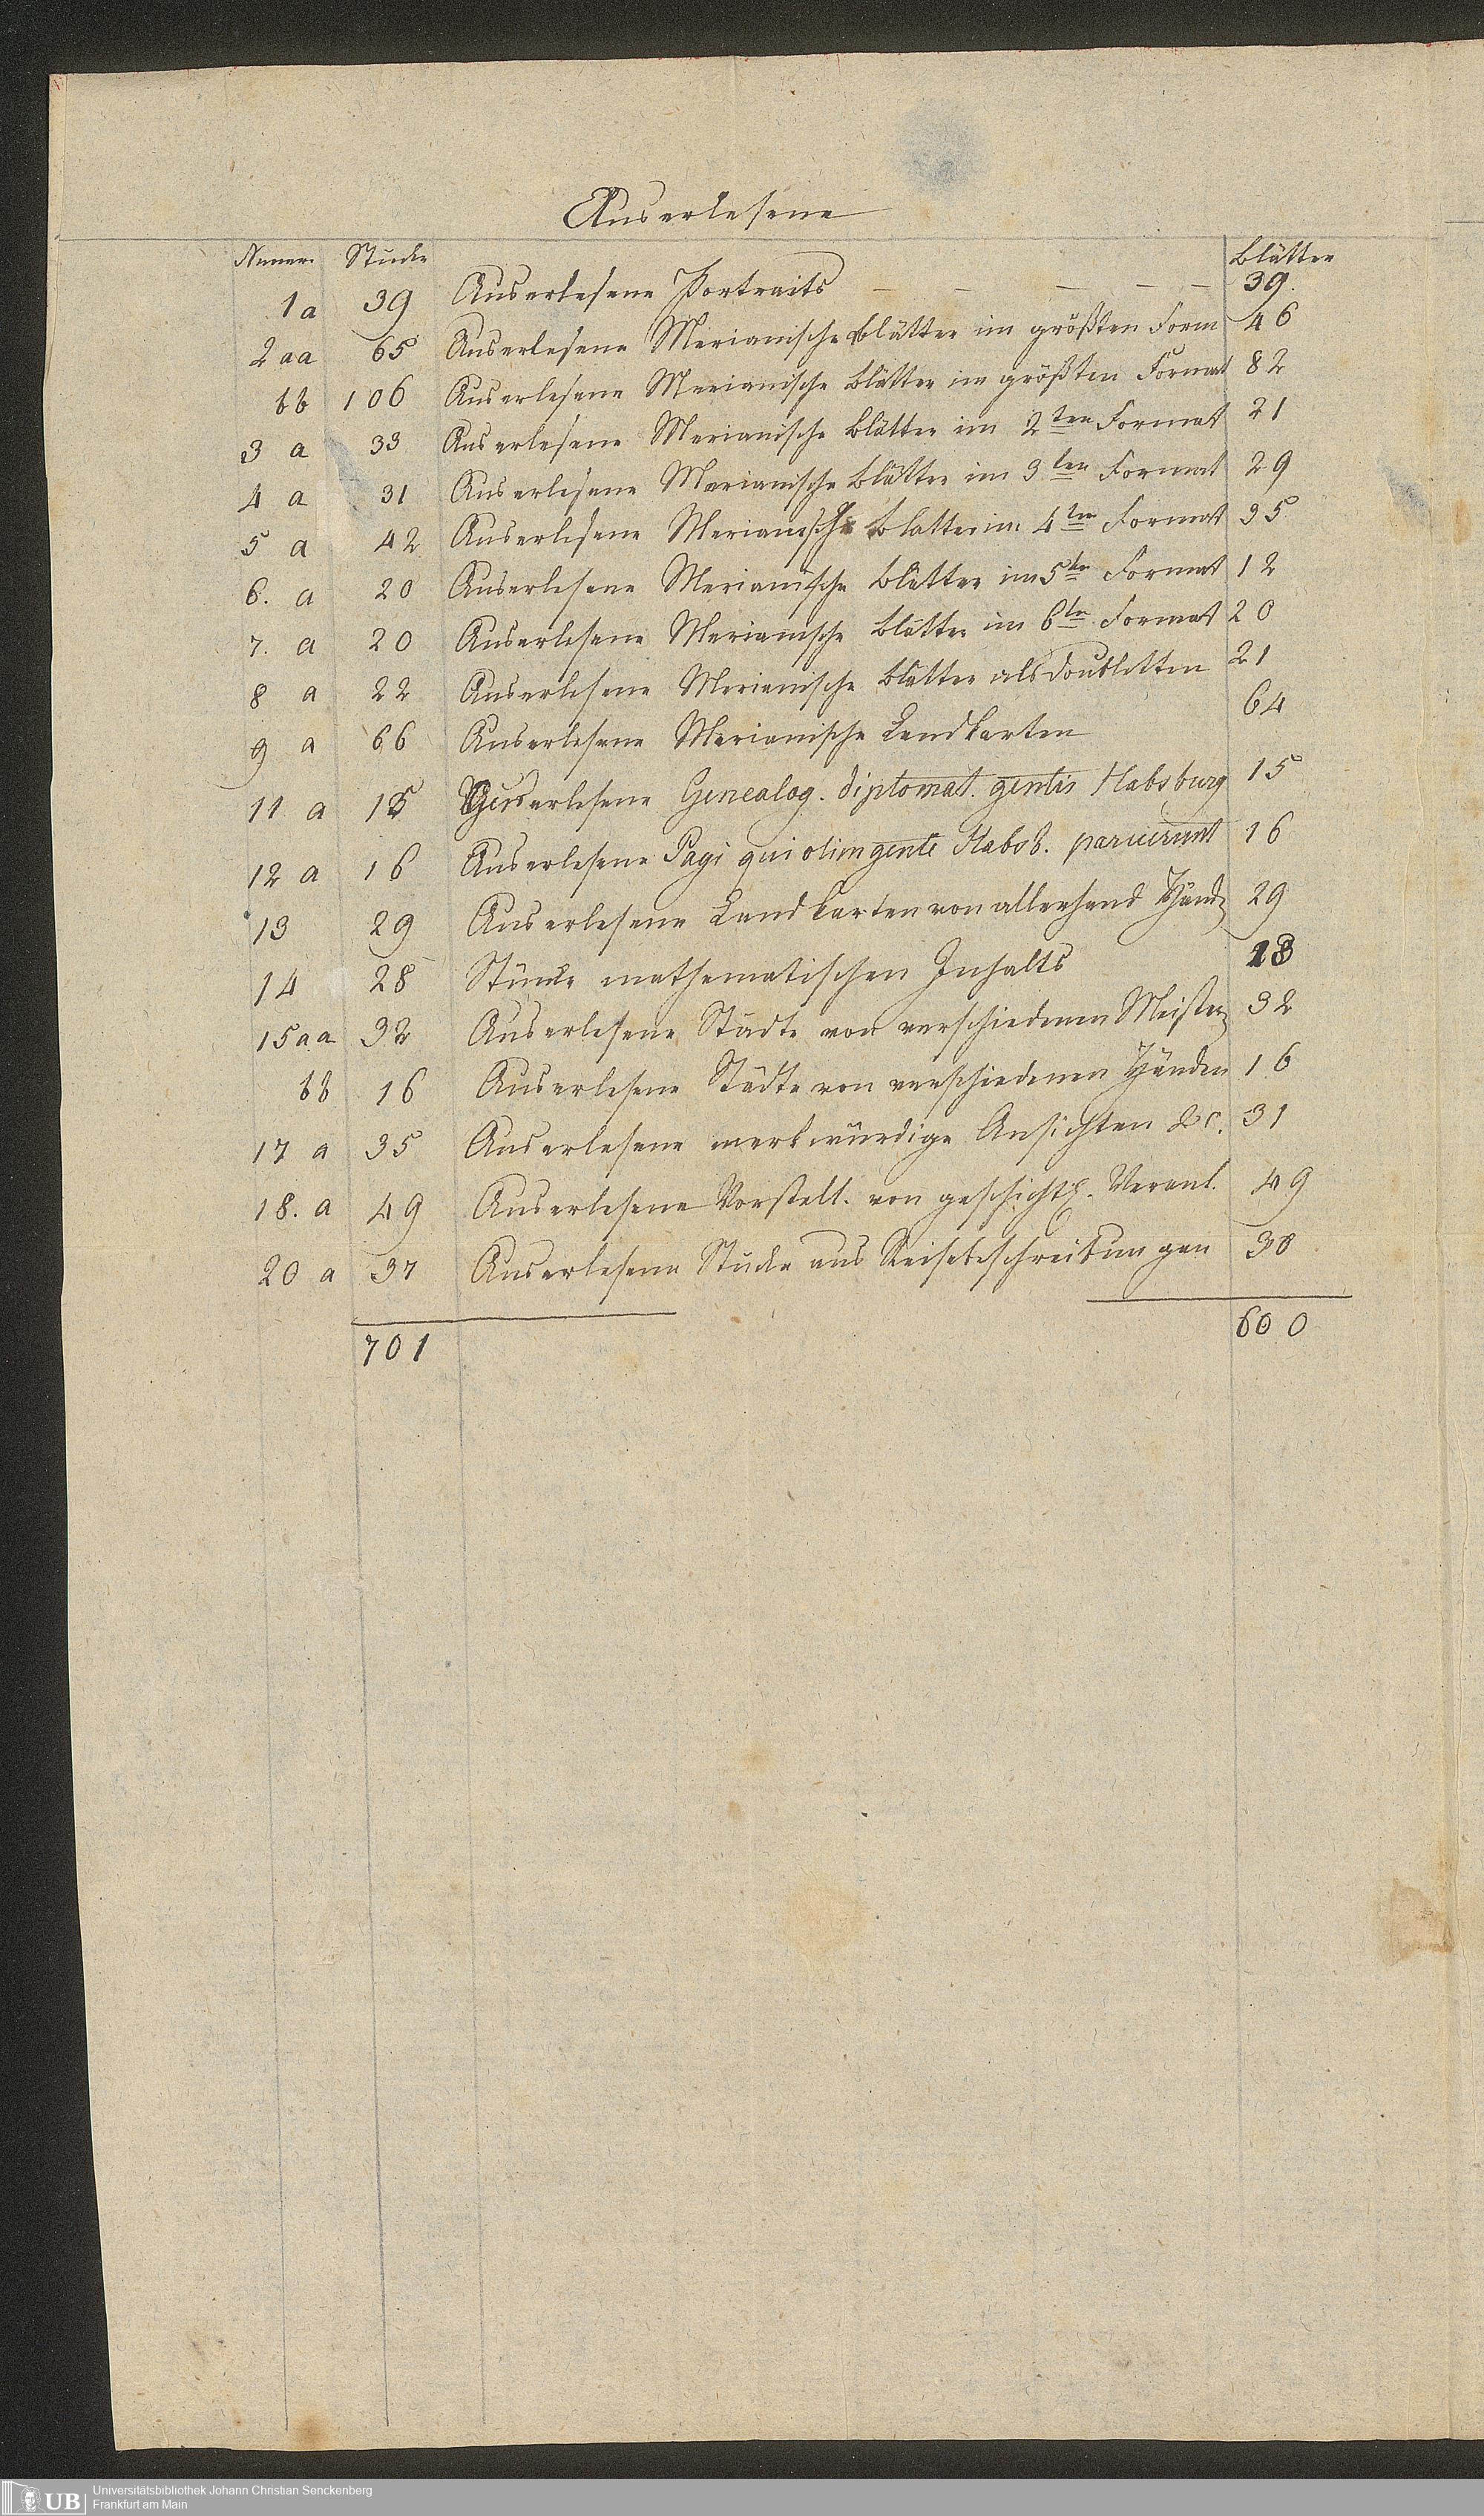 Auserlesene
Numer. Stücke Blätter
1 a 39 Auserlesene Portraits — — — — — 39.
2 aa 65 Auserlesene Merianische Blätter im größten Form 46
bb 106 Auserlesene Merianische Blätter im größten Format 82
3 a 33 Auserlesene Merianische Blätter im 2ten Format 21
4 a 31 Auserlesene Merianische Blätter im 3ten Format 29
5 a 42 Auserlesene Merianische Blatter im 4ten Format 35
6. a 20 Auserlesene Merianische Blätter im 5ten Format 12
7. a 20 Auserlesene Merianische Blätter im 6ten Format 20
8 a 22 Auserlesene Merianische Blätter als Doubletten 21
9 a 66 Auserlesene Merianische Landkarten 64
11 a 15 Auserlesene Genealog. diplomat. gentis Habsburg 15
12 a 16 Auserlesene Pagi qui olim gente Habsb. paruerunt 16
13 29 Auserlesene Landkarten von allerhand Händ 29
14 28 Stücke mathematischen Inhalts 13
15 aa 32 Auserlesene Städte von verschiedenen Meister 32
bb 16 Auserlesene Städte von verschiedenen Händen 16
17 a 35 Auserlesene merkwürdige Ansichten &c. 31
18. a 49 Auserlesene Vorstell. von geschichtl. Veranl. 49
20 a 37 Auserlesene Stücke aus Reisebeschreibungen 30
701 600
UB
Universitätsbibliothek Johann Christian Senckenberg
Frankfurt am Main